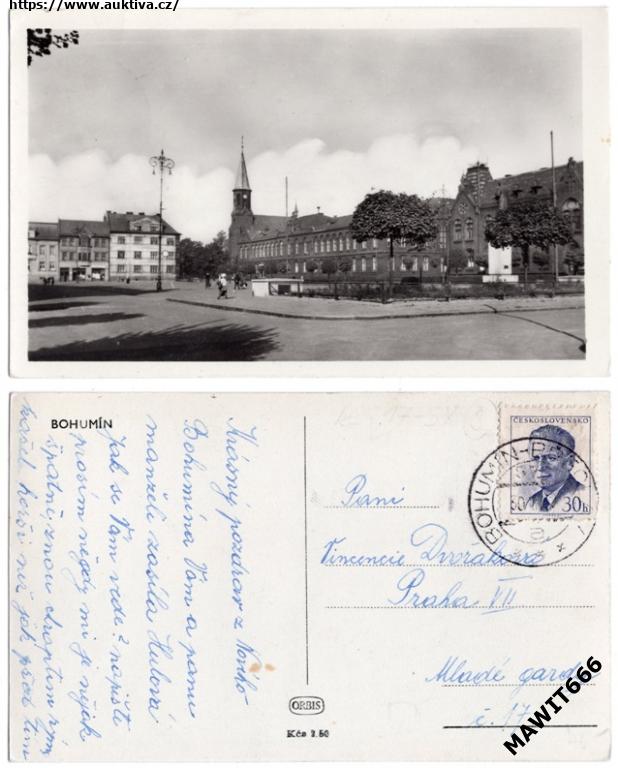 https://www.auktiva.cz/
BOHUMÍN
Krásný pozdrav z Nového
Bohumína Vám a panu
manželi zasílá Hulová
Jak se Vám vede? napište
prosím někdy mi je nějak
špatně, znou chroptím rýmu
kašel horší než jak před tím
ORBIS
Kčs 2.50
ČESKOSLOVENSKO
30h
BOHUMÍN
Paní
Vincencie Dvořáková
Praha VII
Mladé gardy
č. 17
MAWIT666